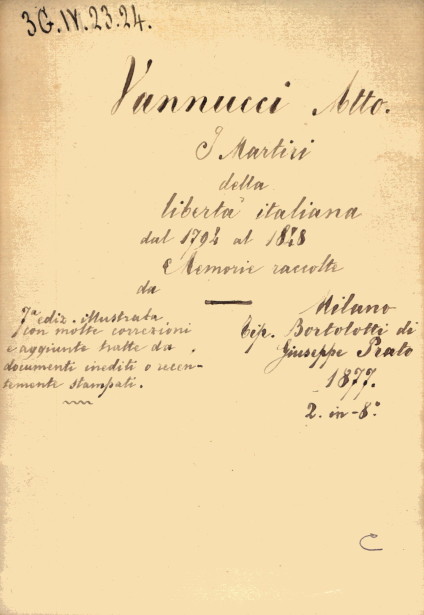 3G.IV.23.24.
Vannucci Atto.
I Martiri
della
libertà italiana
dal 1794 al 1848
Memorie raccolte
da
7ª ediz. illustrata
con molte correzioni
e aggiunte tratte da
documenti inediti o recen-
temente stampati.
Milano
Tip. Bortolotti di
Giuseppe Prato
1877.
2. in-8º
C